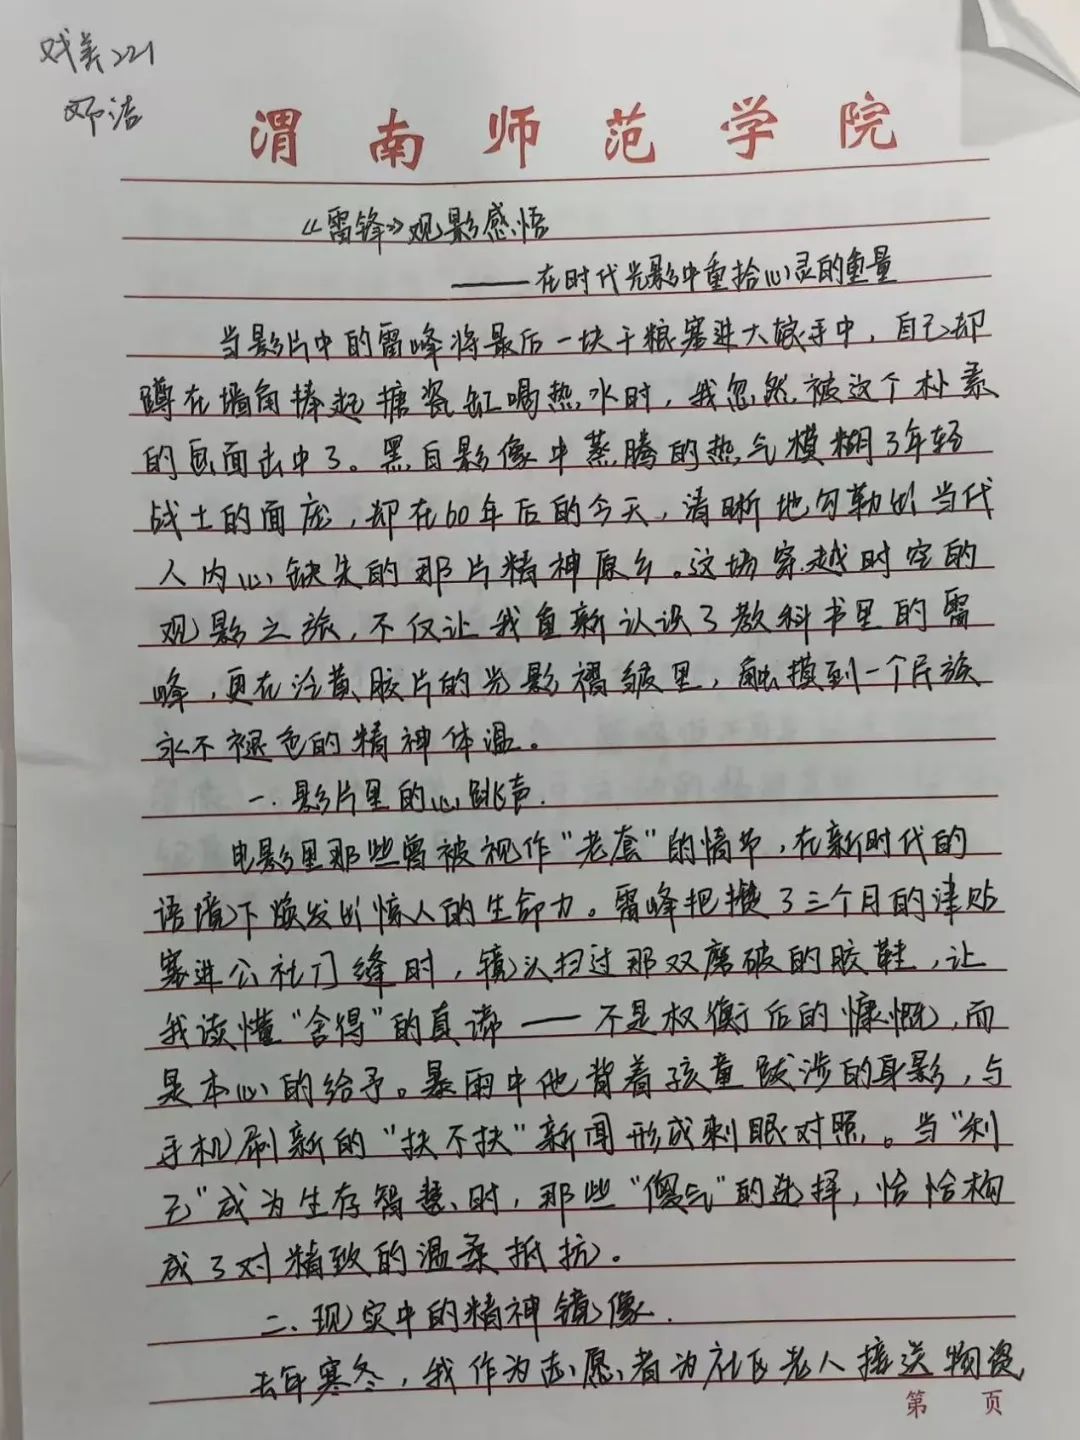 戏美221
邓洁
渭南师范学院
《雷锋》观影感悟
——在时代光影中重拾心灵的重量
当影片中的雷峰将最后一块干粮塞进大娘手中，自己却
蹲在墙角捧起搪瓷缸喝热水时，我忽然被这个朴素
的画面击中了。黑白影像中蒸腾的热气模糊了年轻
战士的面庞，却在60年后的今天，清晰地勾勒出当代
人内心缺失的那片精神原乡。这场穿越时空的
观影之旅，不仅让我重新认识了教科书里的雷
峰，更在泛黄胶片的光影褶皱里，触摸到一个民族
永不褪色的精神体温。
一.影片里的心跳声.
电影里那些曾被视作“老套”的情节，在新时代的
语境下焕发出惊人的生命力。雷峰把攒了三个月的津贴
塞进公社门缝时，镜头扫过那双磨破的胶鞋，让
我读懂“舍得”的真谛——不是权衡后的慷慨，而
是本心的给予。暴雨中他背着孩童跋涉的身影，与
手机刷新的“扶不扶”新闻形成刺眼对照。当“利
己”成为生存智慧时，那些“傻气”的选择，恰恰构
成了对精致的温柔抵抗。
二.现实中的精神镜像.
去年寒冬，我作为志愿者为社区老人接送物资
第 页